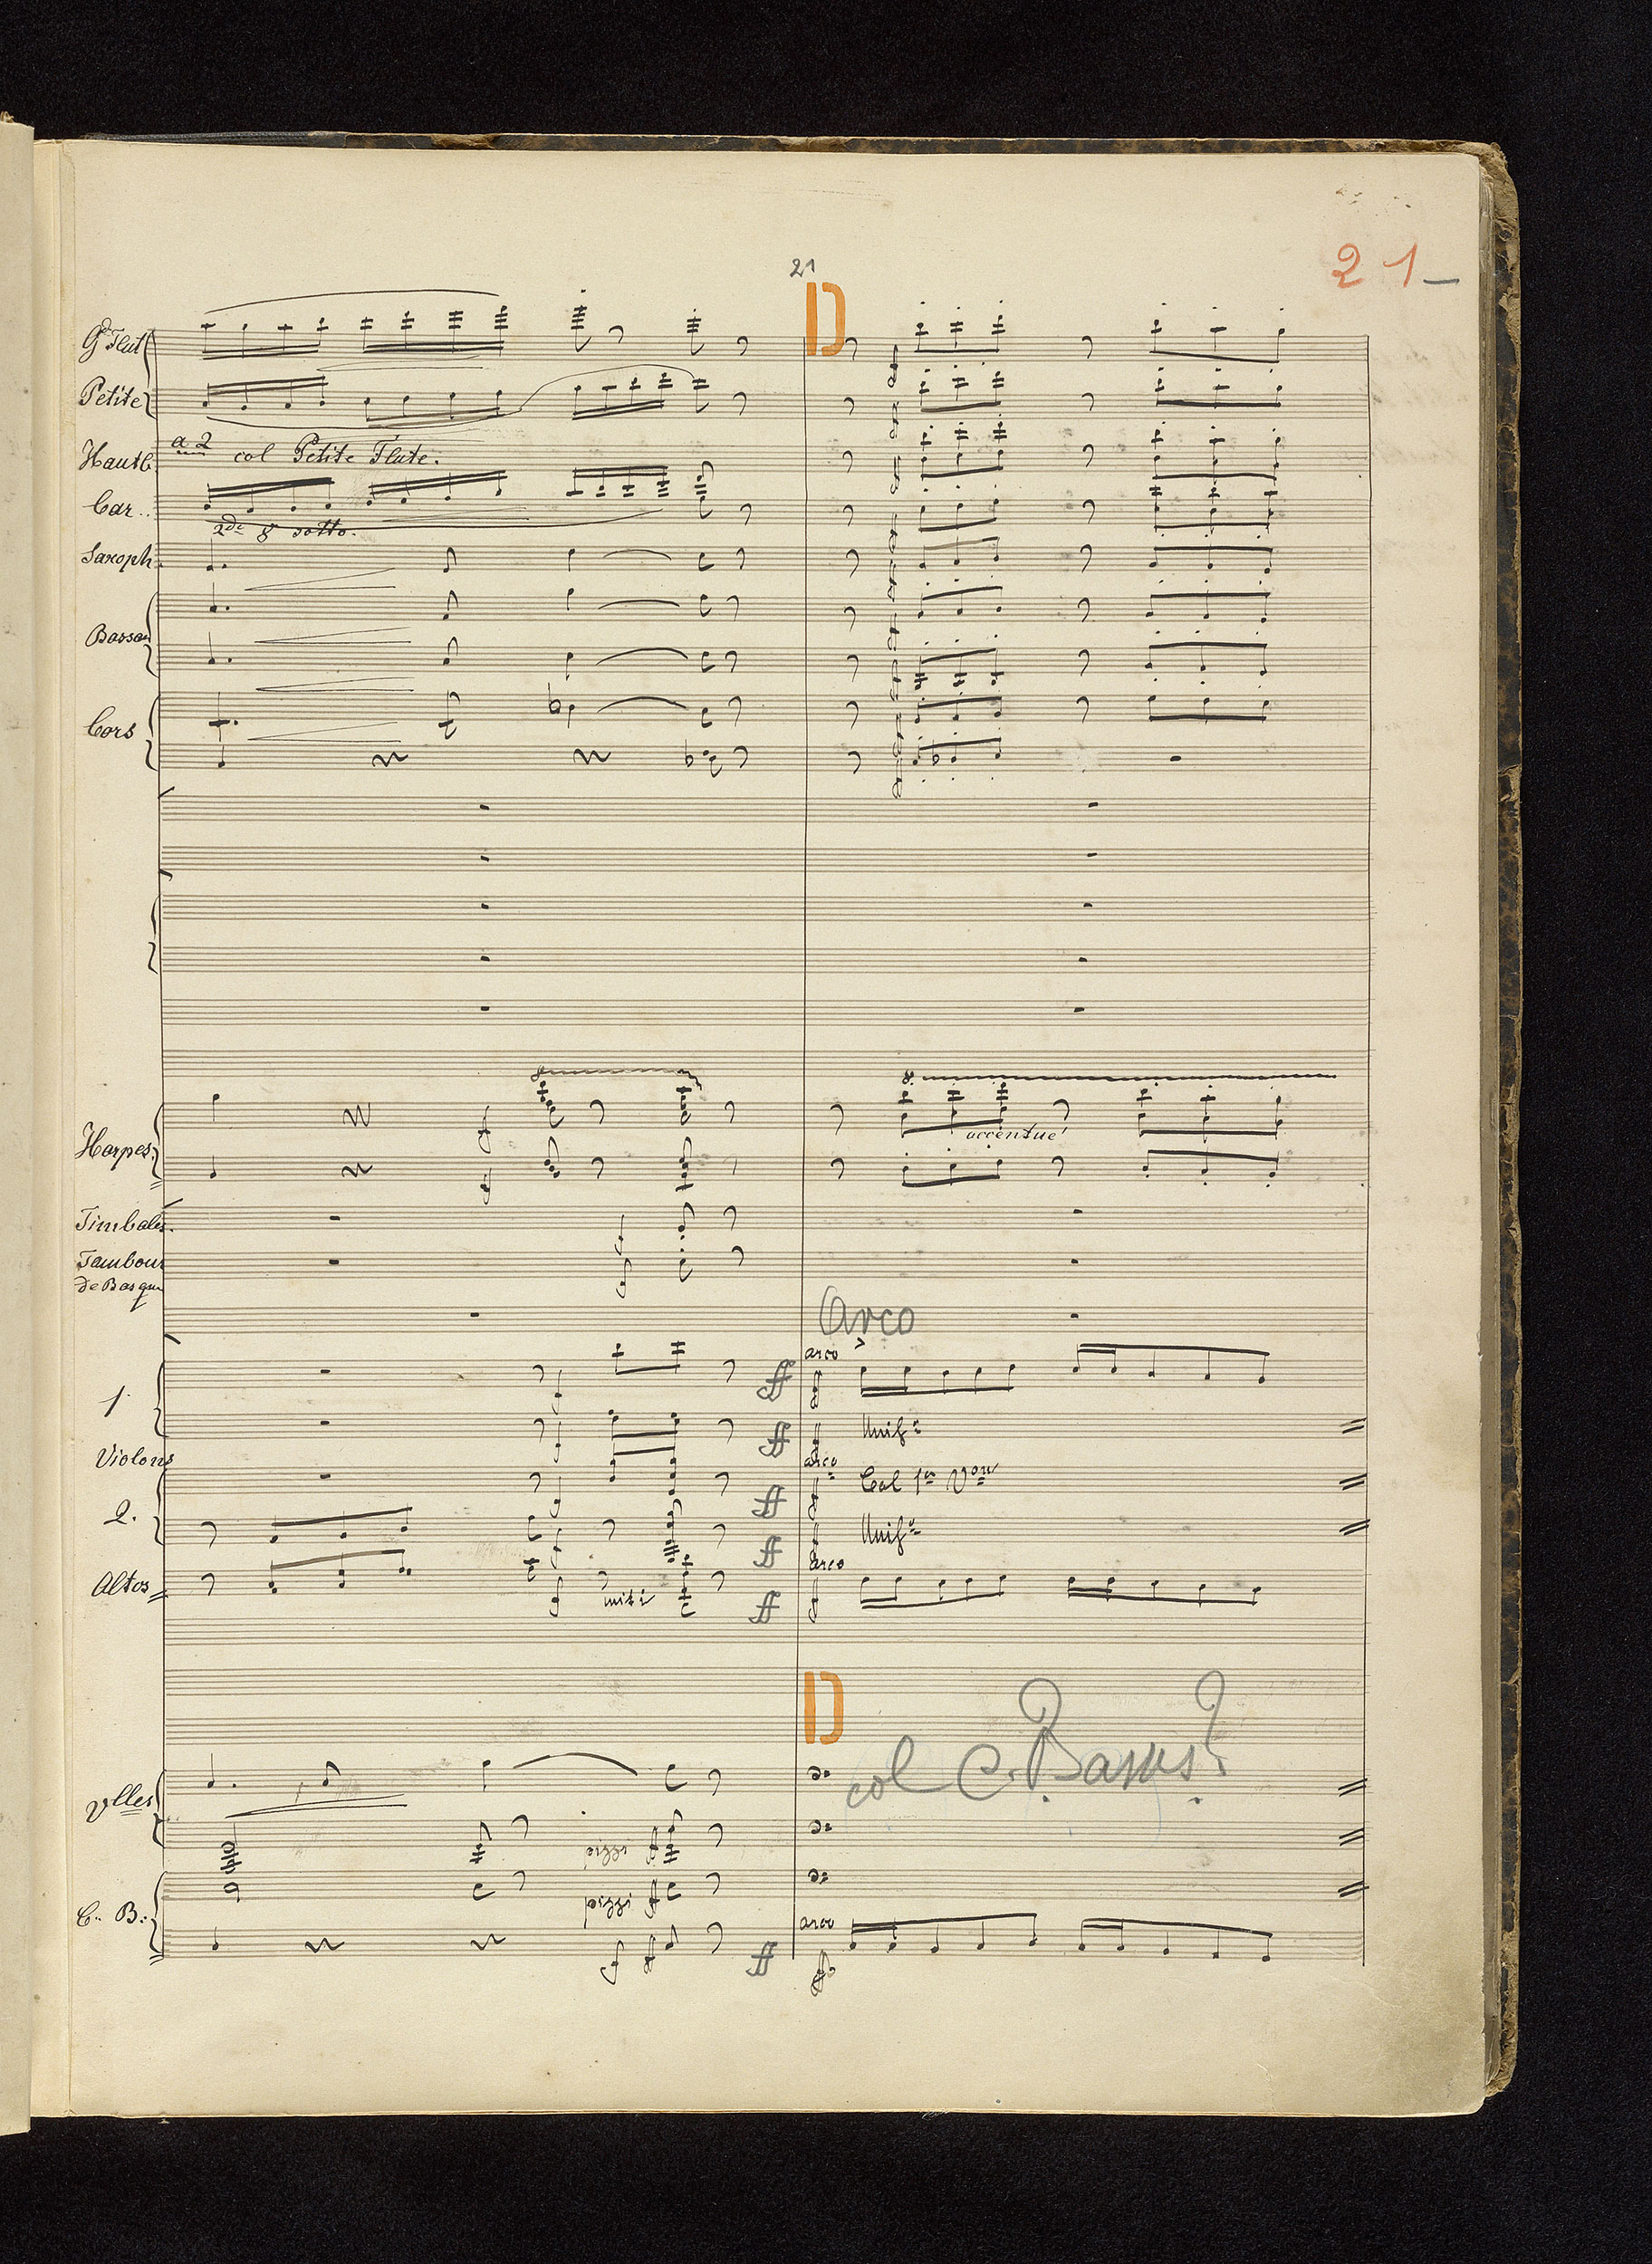 21
21
D
Gde Flut
Petite
a 2
col Petite Flute.
Hautb.
Clar..
2de 8 sotto.
Saxoph.
Basson
Cors
f
8
8
accentué
Harpes.
Timbales.
Tambour
de Basque
Arco
arco
1.
ff
Unis:
ff
Violons
arco
Col 1er Von
ff
2.
Unis:
ff
arco
Altos
unis
ff
D
col C. Basses?
Vlles
pizzi
C. B:
pizzi
arco
f ff
ff